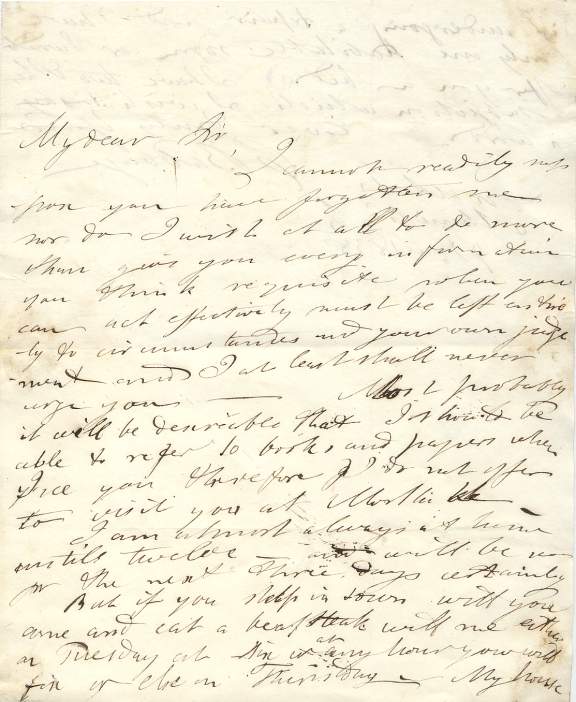 My dear Sir,
I cannot readily sup
pose you have forgotten me
nor do I wish at all to do more
than give you every information
you think requisite when you
can act effectively must be left entire
ly to circumstances and your own judge
ment and I at least shall never
urge you — Most probably
it will be desirable that I should be
able to refer to books and papers when
I see you therefore I do not offer
to visit you at Mortlake
I am almost always at home
untill twelve — and will be so
for the next three days certainly
But if you sleep in town will you
come and eat a beef steak with me either
on Tuesday at six or at any hour you will
fix or else on Thursday — My house